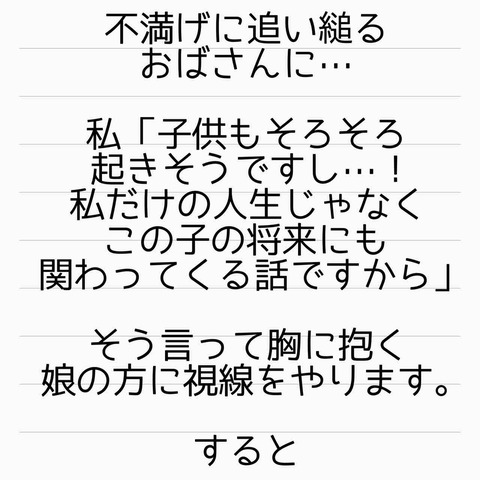 不満げに追い縋る
おばさんに…
私「子供もそろそろ
起きそうですし…！
私だけの人生じゃなく
この子の将来にも
関わってくる話ですから」
そう言って胸に抱く
娘の方に視線をやります。
すると